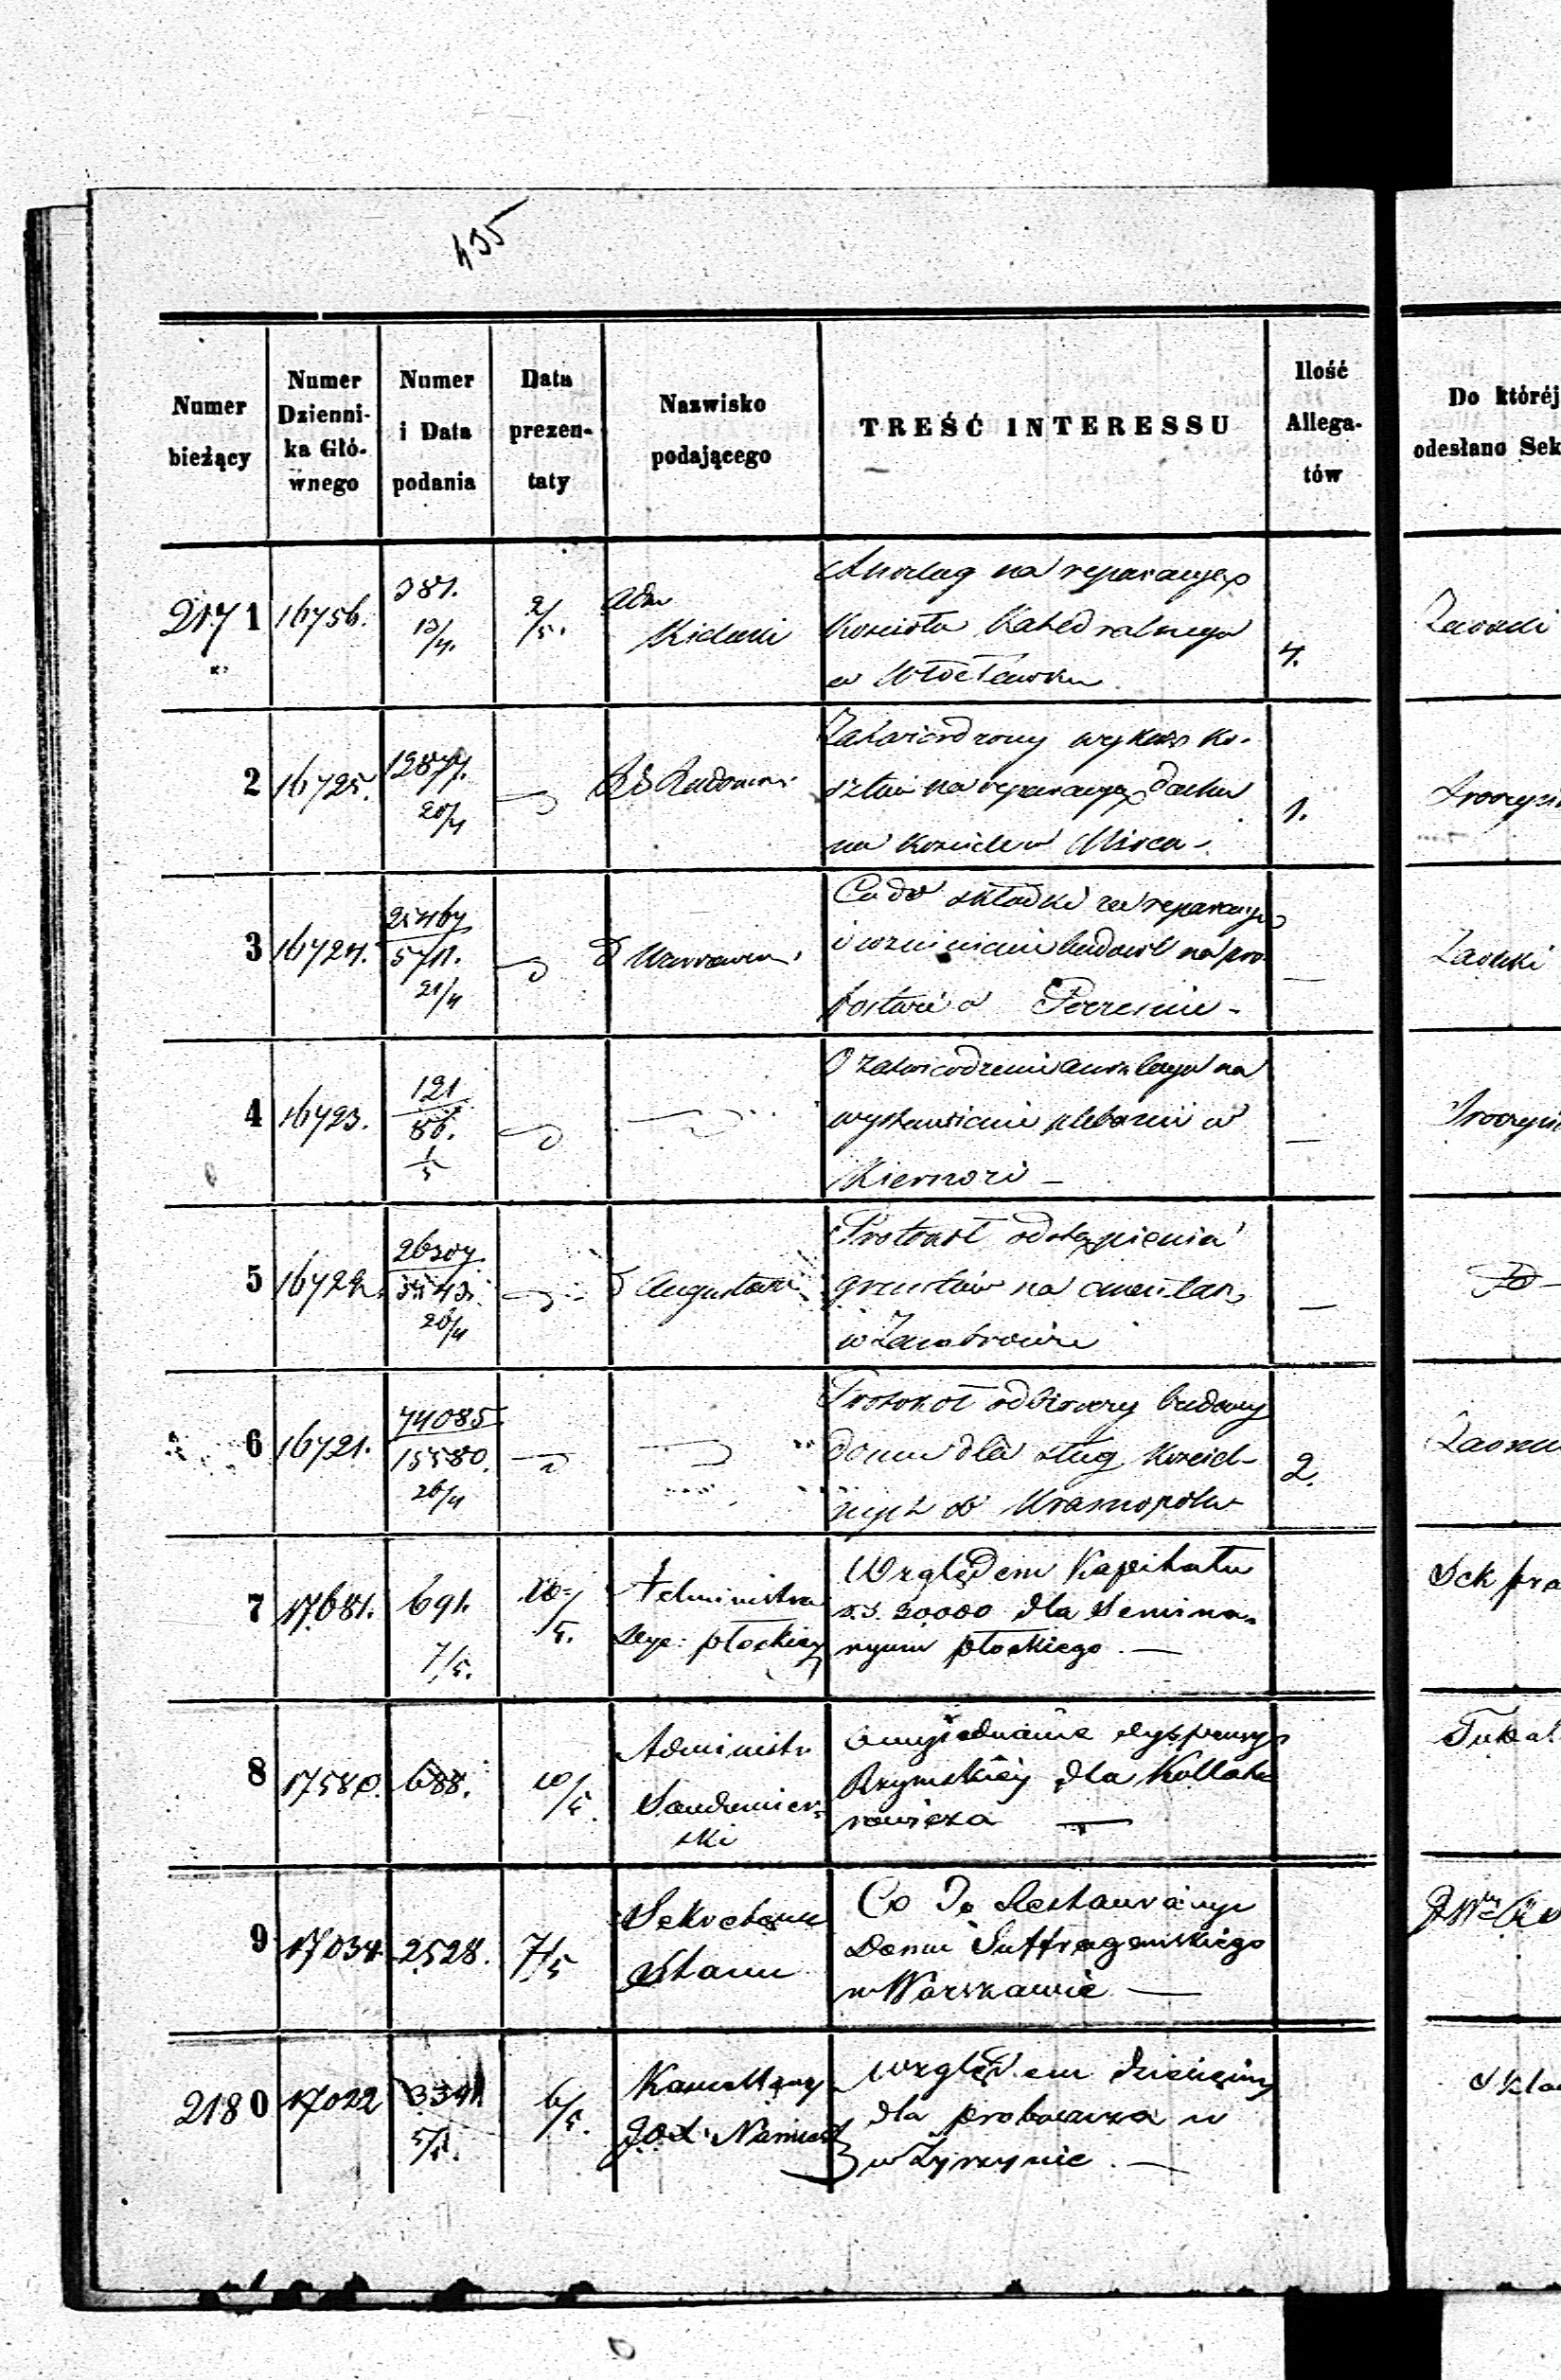 435
Numer bieżący
Numer Dzienni- ka Głó- wnego
Numer i Data podania
Data prezen- taty
Nazwisko podającego
TREŚĆ INTERESSU
Ilość Allega- tów
Do któréj odesłano Sek
2171 16756. 381. 13/4. 2/5. Adm Kielecki
Anszlag na reparacyę
Kościoła Katedralnego
w Włocławku
4.
2 16725. 12877. 20/4 RG Radoms.
Zatwierdzony wykaz ko-
sztów na reparacyę dachu
na kościele w Mirca -
1.
3 16724. 5711. 21/4 Warszaws.
Co do składki na reparacyę
i wzniesienie budowl na pro-
bostwie w
4 16723. 121 86. 1/5
O zatwierdzenie anszlagu na
wystawienie plebanii w
Kiernozi -
5 16722. 26307 26/4 Augustows
Protokół odstąpienia
gruntów na cmentarz
w Zambrowie
6 16721. 74085 15580. 26/4
Protokół odbiorczy budowy
domu dla sług kościel-
nych w Krasnopolu
2.
7 17681. 691. 7/5. 10/5. Administra
Dyec: płockiey
Względem Kapitału
r.s. 30,000 dla Semina-
ryum płockiego. —
Sek pra
8 17580. 688. 10/5. Administr
Sandomier-
ski
O wyjednanie dyspensy
Rzymskiéy dla Kołłoto
rowicza —
9 17034 2528. 7/5 Sekretarz
Stanu
Co do Restauracyi
Domu Suffraganskiego
w Warszawie —
2180 17022 5/5. 6/5. Kancellarya
JOX. Namiest
Względem dziesięciny
dla proboszcza w
w Żyrzynie. —